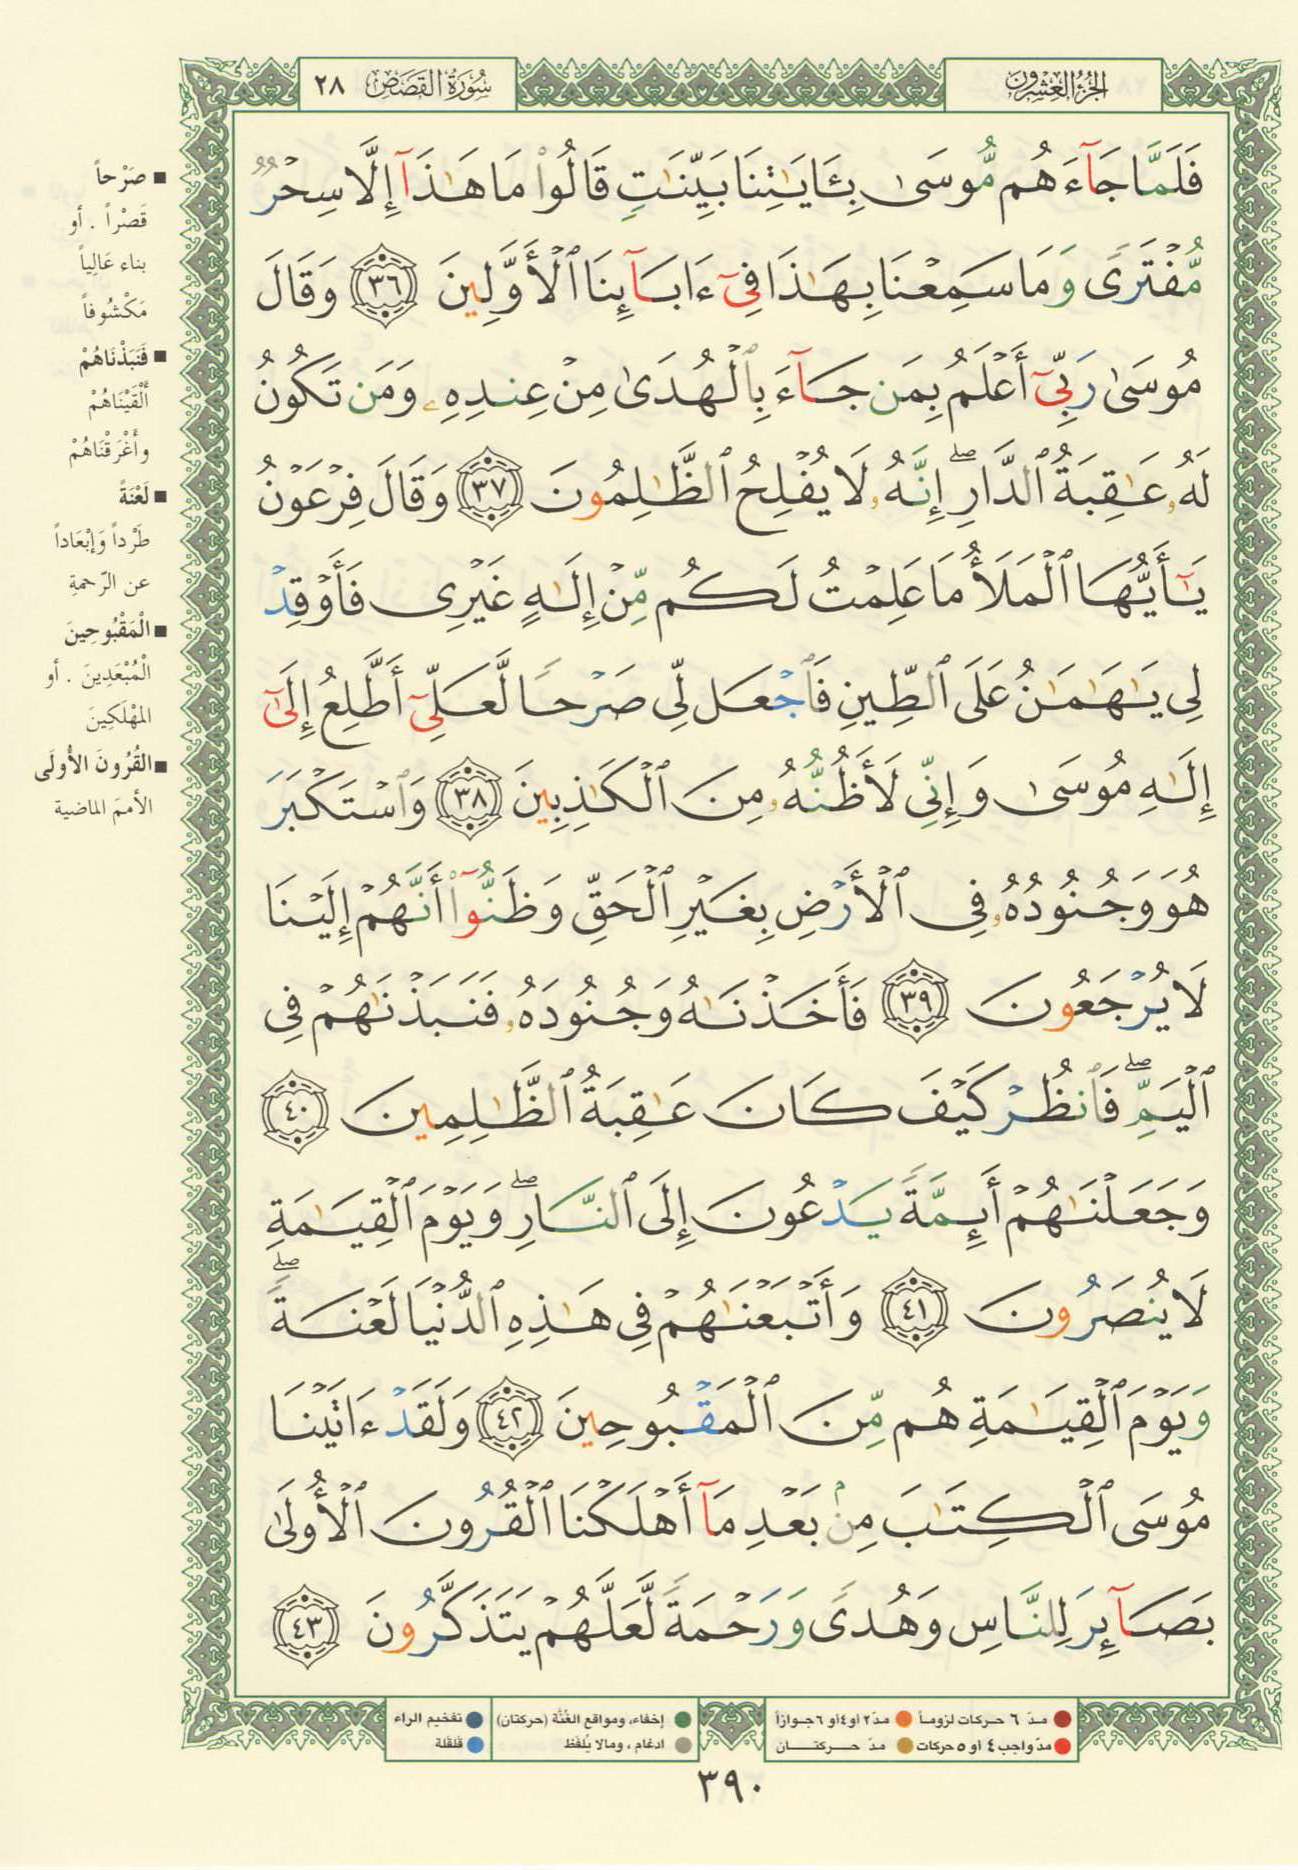 سُورَةُ القَصَصِ ٢٨
الجُزْءُ العِشْرُونَ
فَلَمَّا جَآءَهُم مُّوسَىٰ بِـَٔايَـٰتِنَا بَيِّنَـٰتٍ قَالُوا۟ مَا هَـٰذَآ إِلَّا سِحْرٌ
مُّفْتَرًى وَمَا سَمِعْنَا بِهَـٰذَا فِىٓ ءَابَآئِنَا ٱلْأَوَّلِينَ ٣٦ وَقَالَ
مُوسَىٰ رَبِّىٓ أَعْلَمُ بِمَن جَآءَ بِٱلْهُدَىٰ مِنْ عِندِهِۦ وَمَن تَكُونُ
لَهُۥ عَـٰقِبَةُ ٱلدَّارِ ۖ إِنَّهُۥ لَا يُفْلِحُ ٱلظَّـٰلِمُونَ ٣٧ وَقَالَ فِرْعَوْنُ
يَـٰٓأَيُّهَا ٱلْمَلَأُ مَا عَلِمْتُ لَكُم مِّنْ إِلَـٰهٍ غَيْرِى فَأَوْقِدْ
لِى يَـٰهَـٰمَـٰنُ عَلَى ٱلطِّينِ فَٱجْعَل لِّى صَرْحًا لَّعَلِّىٓ أَطَّلِعُ إِلَىٰٓ
إِلَـٰهِ مُوسَىٰ وَإِنِّى لَأَظُنُّهُۥ مِنَ ٱلْكَـٰذِبِينَ ٣٨ وَٱسْتَكْبَرَ
هُوَ وَجُنُودُهُۥ فِى ٱلْأَرْضِ بِغَيْرِ ٱلْحَقِّ وَظَنُّوٓا۟ أَنَّهُمْ إِلَيْنَا
لَا يُرْجَعُونَ ٣٩ فَأَخَذْنَـٰهُ وَجُنُودَهُۥ فَنَبَذْنَـٰهُمْ فِى
ٱلْيَمِّ ۖ فَٱنظُرْ كَيْفَ كَانَ عَـٰقِبَةُ ٱلظَّـٰلِمِينَ ٤٠
وَجَعَلْنَـٰهُمْ أَئِمَّةً يَدْعُونَ إِلَى ٱلنَّارِ ۖ وَيَوْمَ ٱلْقِيَـٰمَةِ
لَا يُنصَرُونَ ٤١ وَأَتْبَعْنَـٰهُمْ فِى هَـٰذِهِ ٱلدُّنْيَا لَعْنَةً ۖ
وَيَوْمَ ٱلْقِيَـٰمَةِ هُم مِّنَ ٱلْمَقْبُوحِينَ ٤٢ وَلَقَدْ ءَاتَيْنَا
مُوسَى ٱلْكِتَـٰبَ مِنۢ بَعْدِ مَآ أَهْلَكْنَا ٱلْقُرُونَ ٱلْأُولَىٰ
بَصَآئِرَ لِلنَّاسِ وَهُدًى وَرَحْمَةً لَّعَلَّهُمْ يَتَذَكَّرُونَ ٤٣
■ صَرْحاً
قَصْراً . أو
بناء عَالِياً
مَكْشُوفاً
■ فَنَبَذْنَاهُمْ
أَلْقَيْنَاهُمْ
وأَغْرَقْنَاهُمْ
■ لَعْنَةً
طَرْداً وَإبْعَاداً
عن الرّحمةِ
■ الْمَقْبُوحِينَ
الْمُبْعَدِينَ . أو
المهْلَكِينَ
■ القُرُونَ الأُولَى
الأممَ الماضية
مدّ ٦ حركات لزوماً مدّ ٢ أو ٤ أو ٦ جوازاً
مدّ واجب ٤ أو ٥ حركات مدّ حركتان
إخفاء، ومواقع الغُنَّة (حركتان) تفخيم الراء
ادغام ، ومالا يُلفَظ قلقلة
٣٩٠